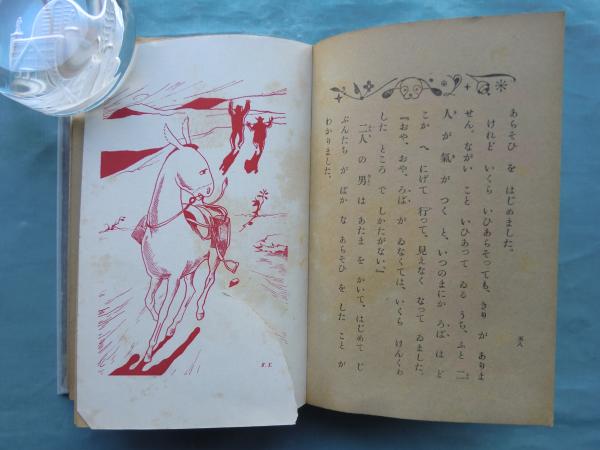 あらそひ を はじめました。
けれど いくら いひあらそっても、きり が ありま
せん。ながい こと いひあって ゐる うち、ふと 二
人 が 氣 が つく と、いつのまにか ろば は ど
こか へ にげて 行って、見えなく なって ゐました。
『おや、おや、ろば が ゐなくては、いくら けんくわ
した ところ で しかたがない。』
二人 の 男 は あたま を かいて、はじめて じ
ぶんたち が ばか な あらそひ を した こと が
わかりました。